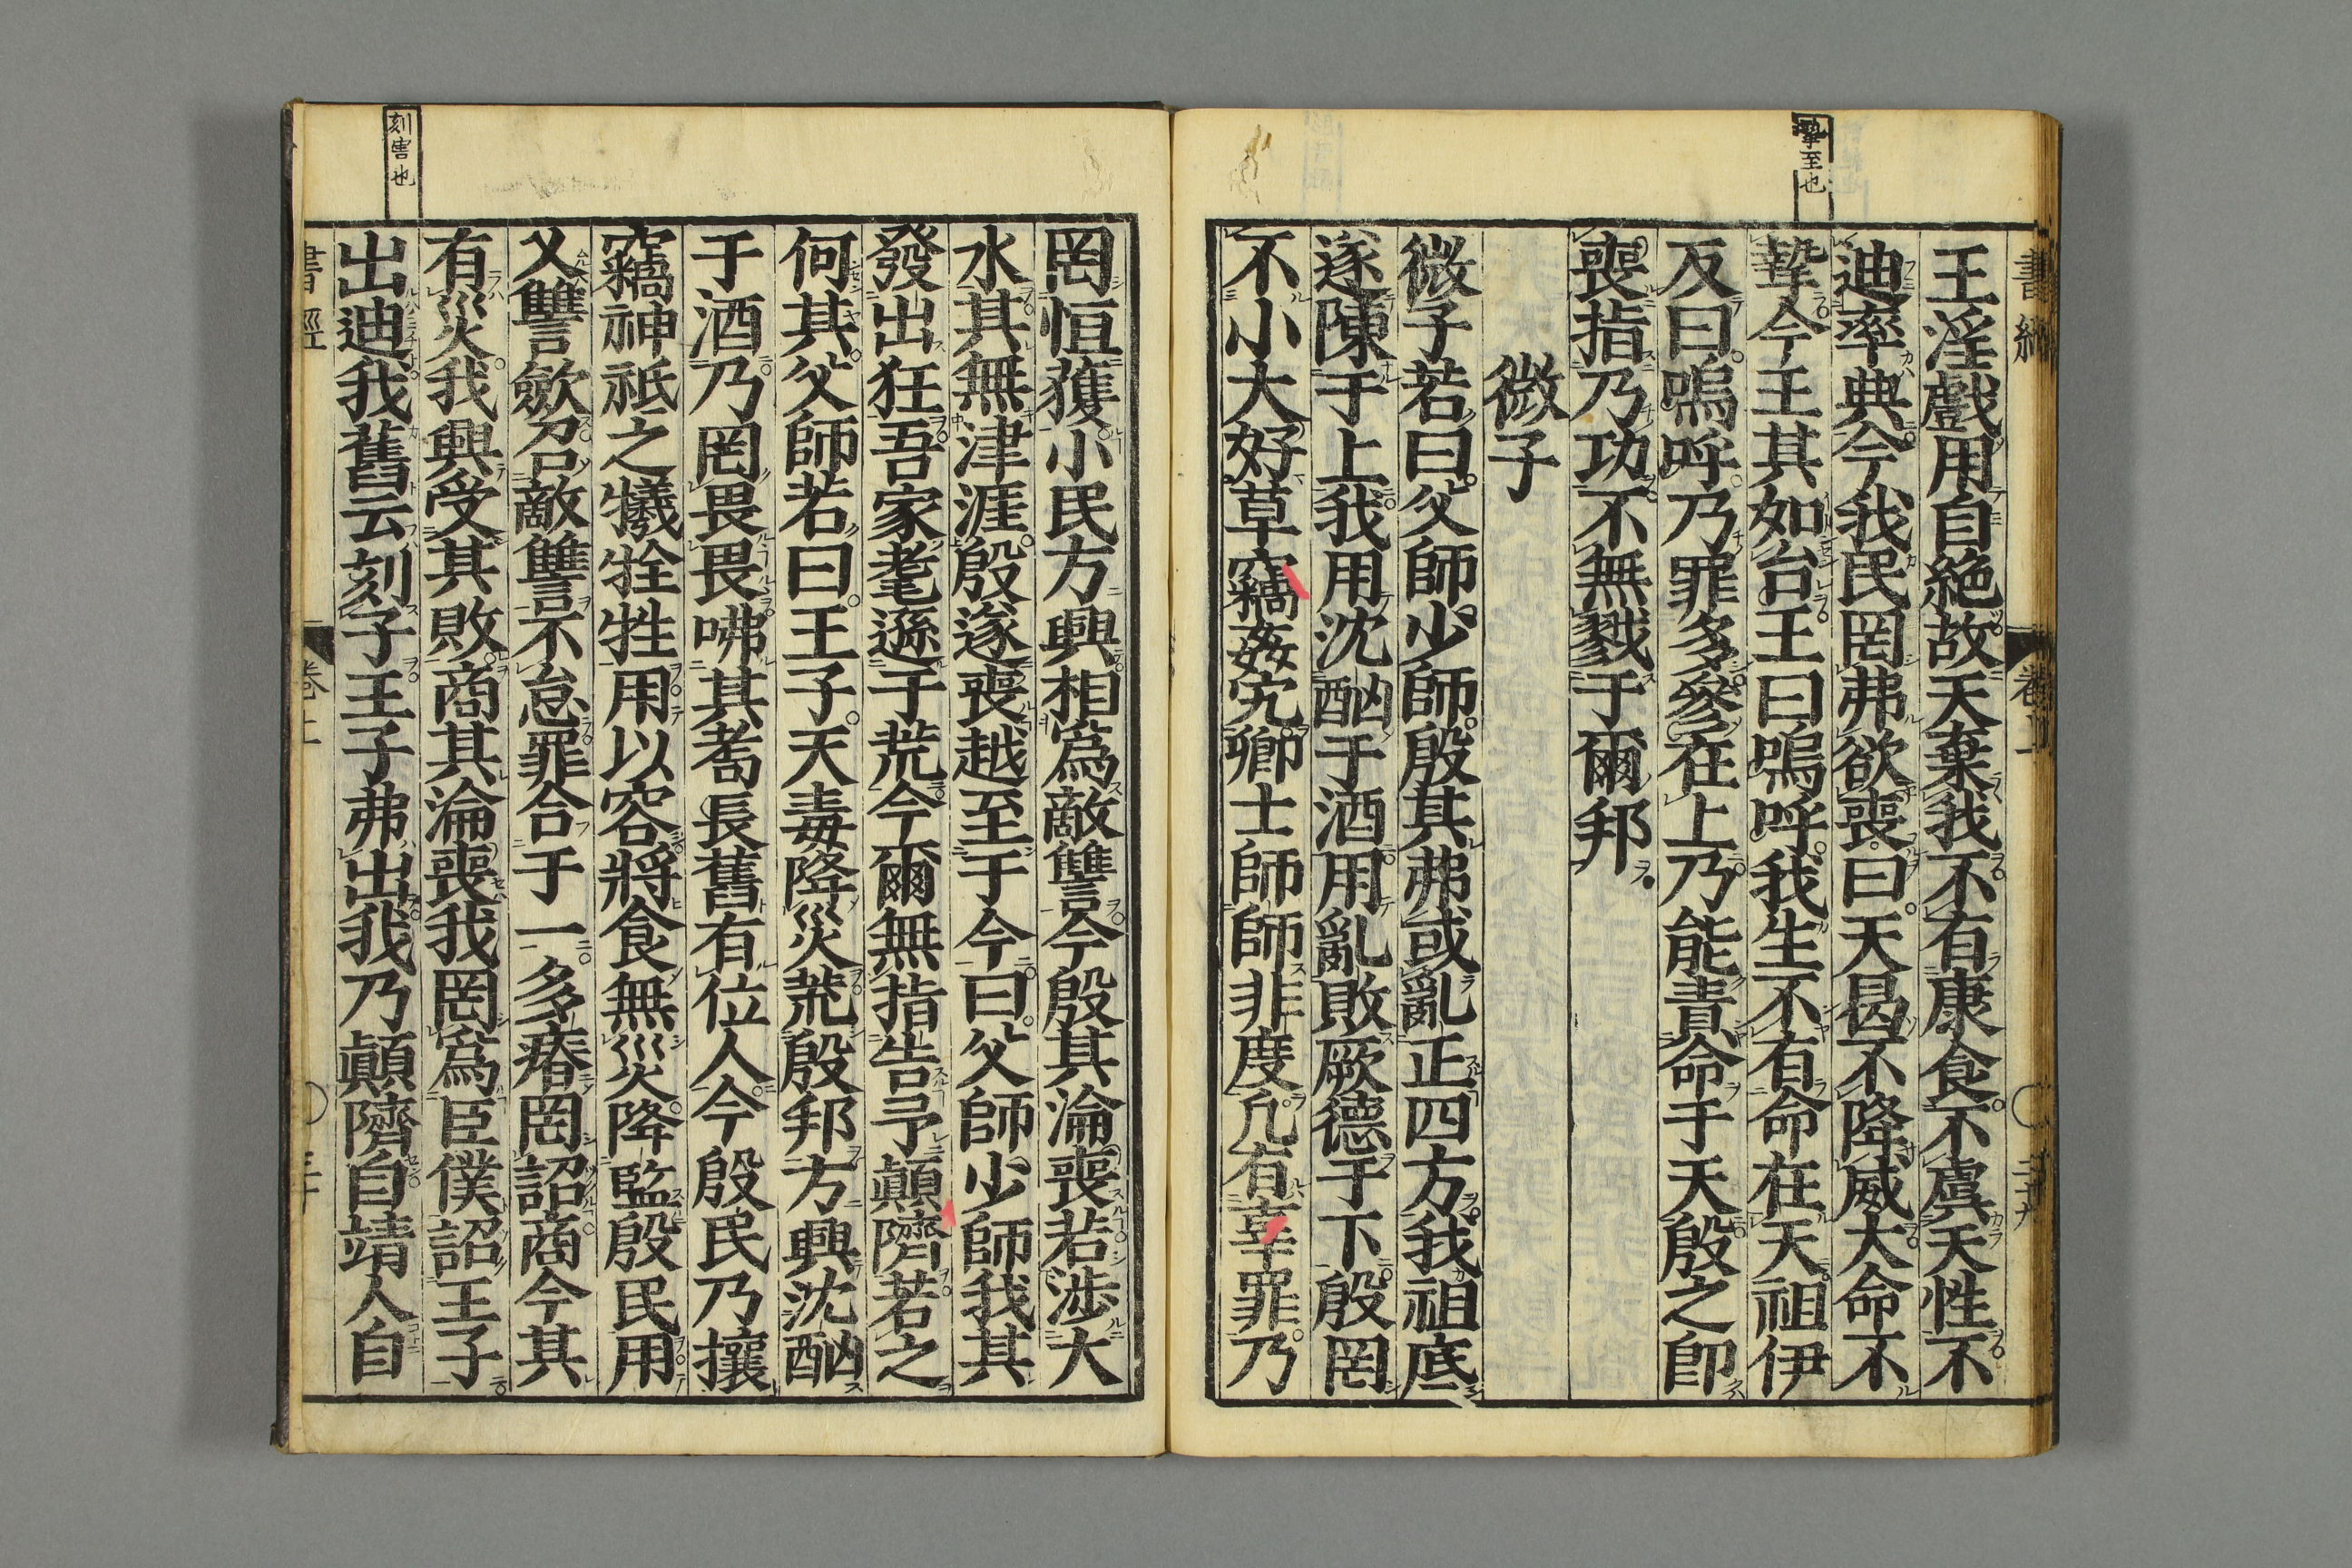 摯至也
王淫戲用自絶故天棄我不有康食不虞天性不
迪率典今我民罔弗欲喪曰天曷不降威大命不
摯今王其如台王曰嗚呼我生不有命在天祖伊
反曰嗚呼乃罪多參在上乃能責命于天殷之即
喪指乃功不無戮于爾邦
微子
微子若曰父師少師殷其弗或亂正四方我祖底
遂陳于上我用沈酗于酒用亂敗厥德于下殷罔
不小大好草竊姦宄卿士師師非度凡有辜罪乃
刻害也
罔恒獲小民方興相爲敵讐今殷其淪喪若渉大
水其無津涯殷遂喪越至于今曰父師少師我其
發出狂吾家耄遜于荒今爾無指告予顚隮若之
何其父師若曰王子天毒降災荒殷邦方興沈酗
于酒乃罔畏畏咈其耇長舊有位人今殷民乃攘
竊神祇之犧牷牲用以容將食無災降監殷民用
乂讐歛召敵讐不怠罪合于一多瘠罔詔商今其
有災我興受其敗商其淪喪我罔爲臣僕詔王子
出迪我舊云刻子王子弗出我乃顚隮自靖人自
書經
卷上
三十